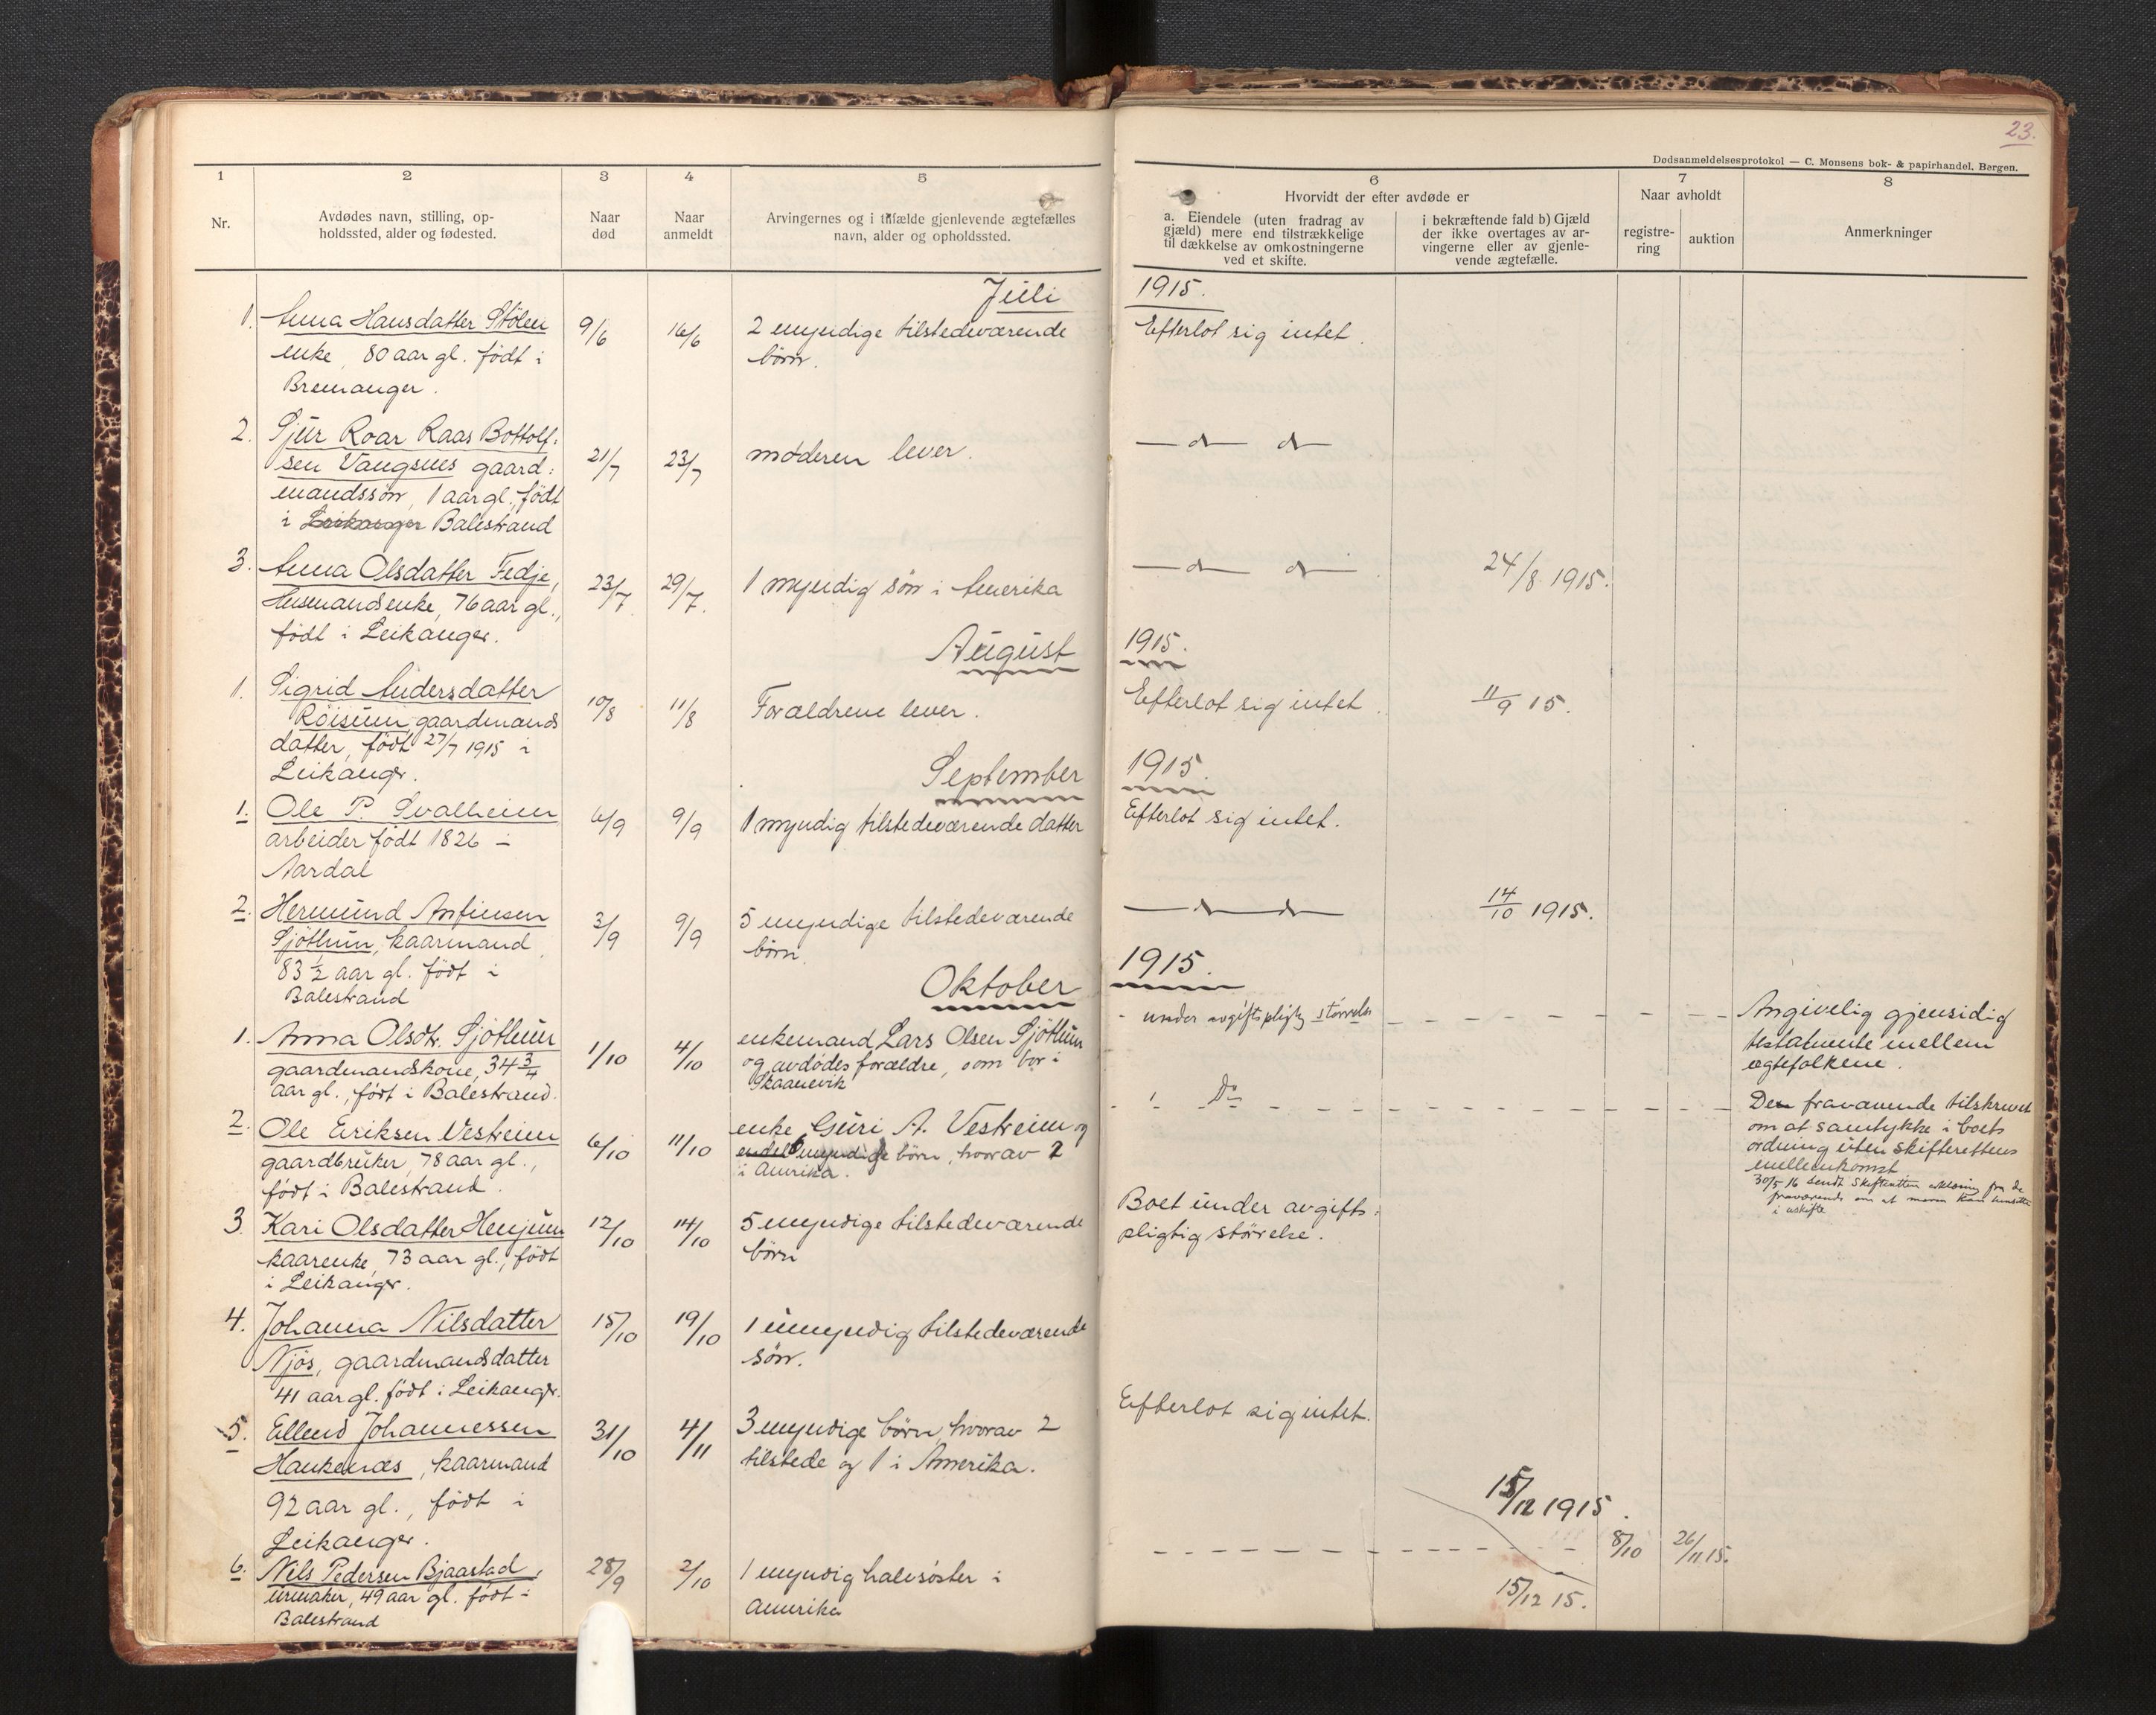 23.
Dødsanmeldelsesprotokol — C. Monsens bok- & papirhandel, Bergen.
1
2
3
4
5
6
7
8
Nr.
Avdødes navn, stilling, op-
holdssted, alder og fødested.
Naar
død
Naar
anmeldt
Arvingernes og i tilfælde gjenlevende ægtefælles
navn, alder og opholdssted.
Hvorvidt der efter avdøde er
a. Eiendele (uten fradrag av
gjæld) mere end tilstrækkelige
til dækkelse av omkostningerne
ved et skifte.
i bekræftende fald b) Gjæld
der ikke overtages av ar-
vingerne eller av gjenle-
vende ægtefælle.
Naar avholdt
registre-
ring
auktion
Anmerkninger
Juli 1915.
1. Anna Hansdatter Stölen
enke, 80 aar gl. födt i
Bremanger.
9/6
16/6
2 myndige tilstedeværende
börn.
Efterlot sig intet.
2. Sjur Roar Raas Bottolf-
sen Vangsnes gaard-
mandssön, 1 aar gl., födt
i Leikanger Balestrand
21/7
23/7
moderen lever.
— d — d —
3. Anna Olsdatter Fedje,
Husmandsenke, 76 aar gl.,
födt i Leikanger.
23/7
29/7.
1 myndig sön i Amerika
— d — d —
24/8 1915.
August 1915.
1. Sigrid Andersdatter
Röisum, gaardmands
datter, födt 27/7 1915 i
Leikangr.
10/8
11/8
Forældrene lever.
Efterlot sig intet.
11/9 15.
September 1915.
1. Ole P. Svalheim
arbeider födt 1826 i
Aardal
6/9
9/9
1 myndig tilstedeværende datter
Efterlot sig intet.
2. Hermund Anfinsen
Sjöthun, kaarmand,
83 ½ aar gl. födt i
Balestrand
3/9
9/9
5 myndige tilstedeværende
börn.
— d — d —
14/10 1915.
Oktober 1915.
1. Anna Olsdtr. Sjöthun
gaardmandskone, 34 3/4
aar gl., födt i Balestrand.
1/10
4/10
enkemand Lars Olsen Sjöthun
og avdödes forældre, som bor i
Skaanevik
- under avgiftspligtig störrelse
Angivelig gjensidig
testamente mellem
egtefolkene.
2. Ole Eriksen Vestreim
gaardbruker, 78 aar gl.,
födt i Balestrand.
6/10
11/10
enke Guri A. Vestreim og
endel 6 myndige börn, hvorav 2
i Amerika.
Do
Den fraværende tilskrevet
om at samtykke i boets
ordning uten skifterettens
mellemkomst.
30/5 16 sendt Skifteretten erklæring fra de
fraværende om at moren kan hensitte
i uskifte
3. Kari Olsdatter Henjum
kaarenke, 73 aar gl., födt
i Leikangr.
12/10
14/10
5 myndige tilstedeværende
börn
Boet under avgifts-
pligtig störrelse.
4. Johanna Nilsdatter
Njös, gaardmandsdatter
41 aar gl. födt i Leikangr.
15/10
19/10
1 umyndig tilstedeværende
sön.
5. Ellend Johannessen
Haukenæs, kaarmand
92 aar gl., födt i
Leikanger.
31/10
4/11
3 myndige börn, hvorav 2
tilstede og 1 i Amerika.
Efterlot sig intet.
15/12 1915.
6. Nils Pedersen Bjaastad,
urmaker, 49 aar gl. födt i
Balestrand
28/9
2/10
1 myndig halvsöster i
Amerika
8/10
26/11 15.
15/12 15.